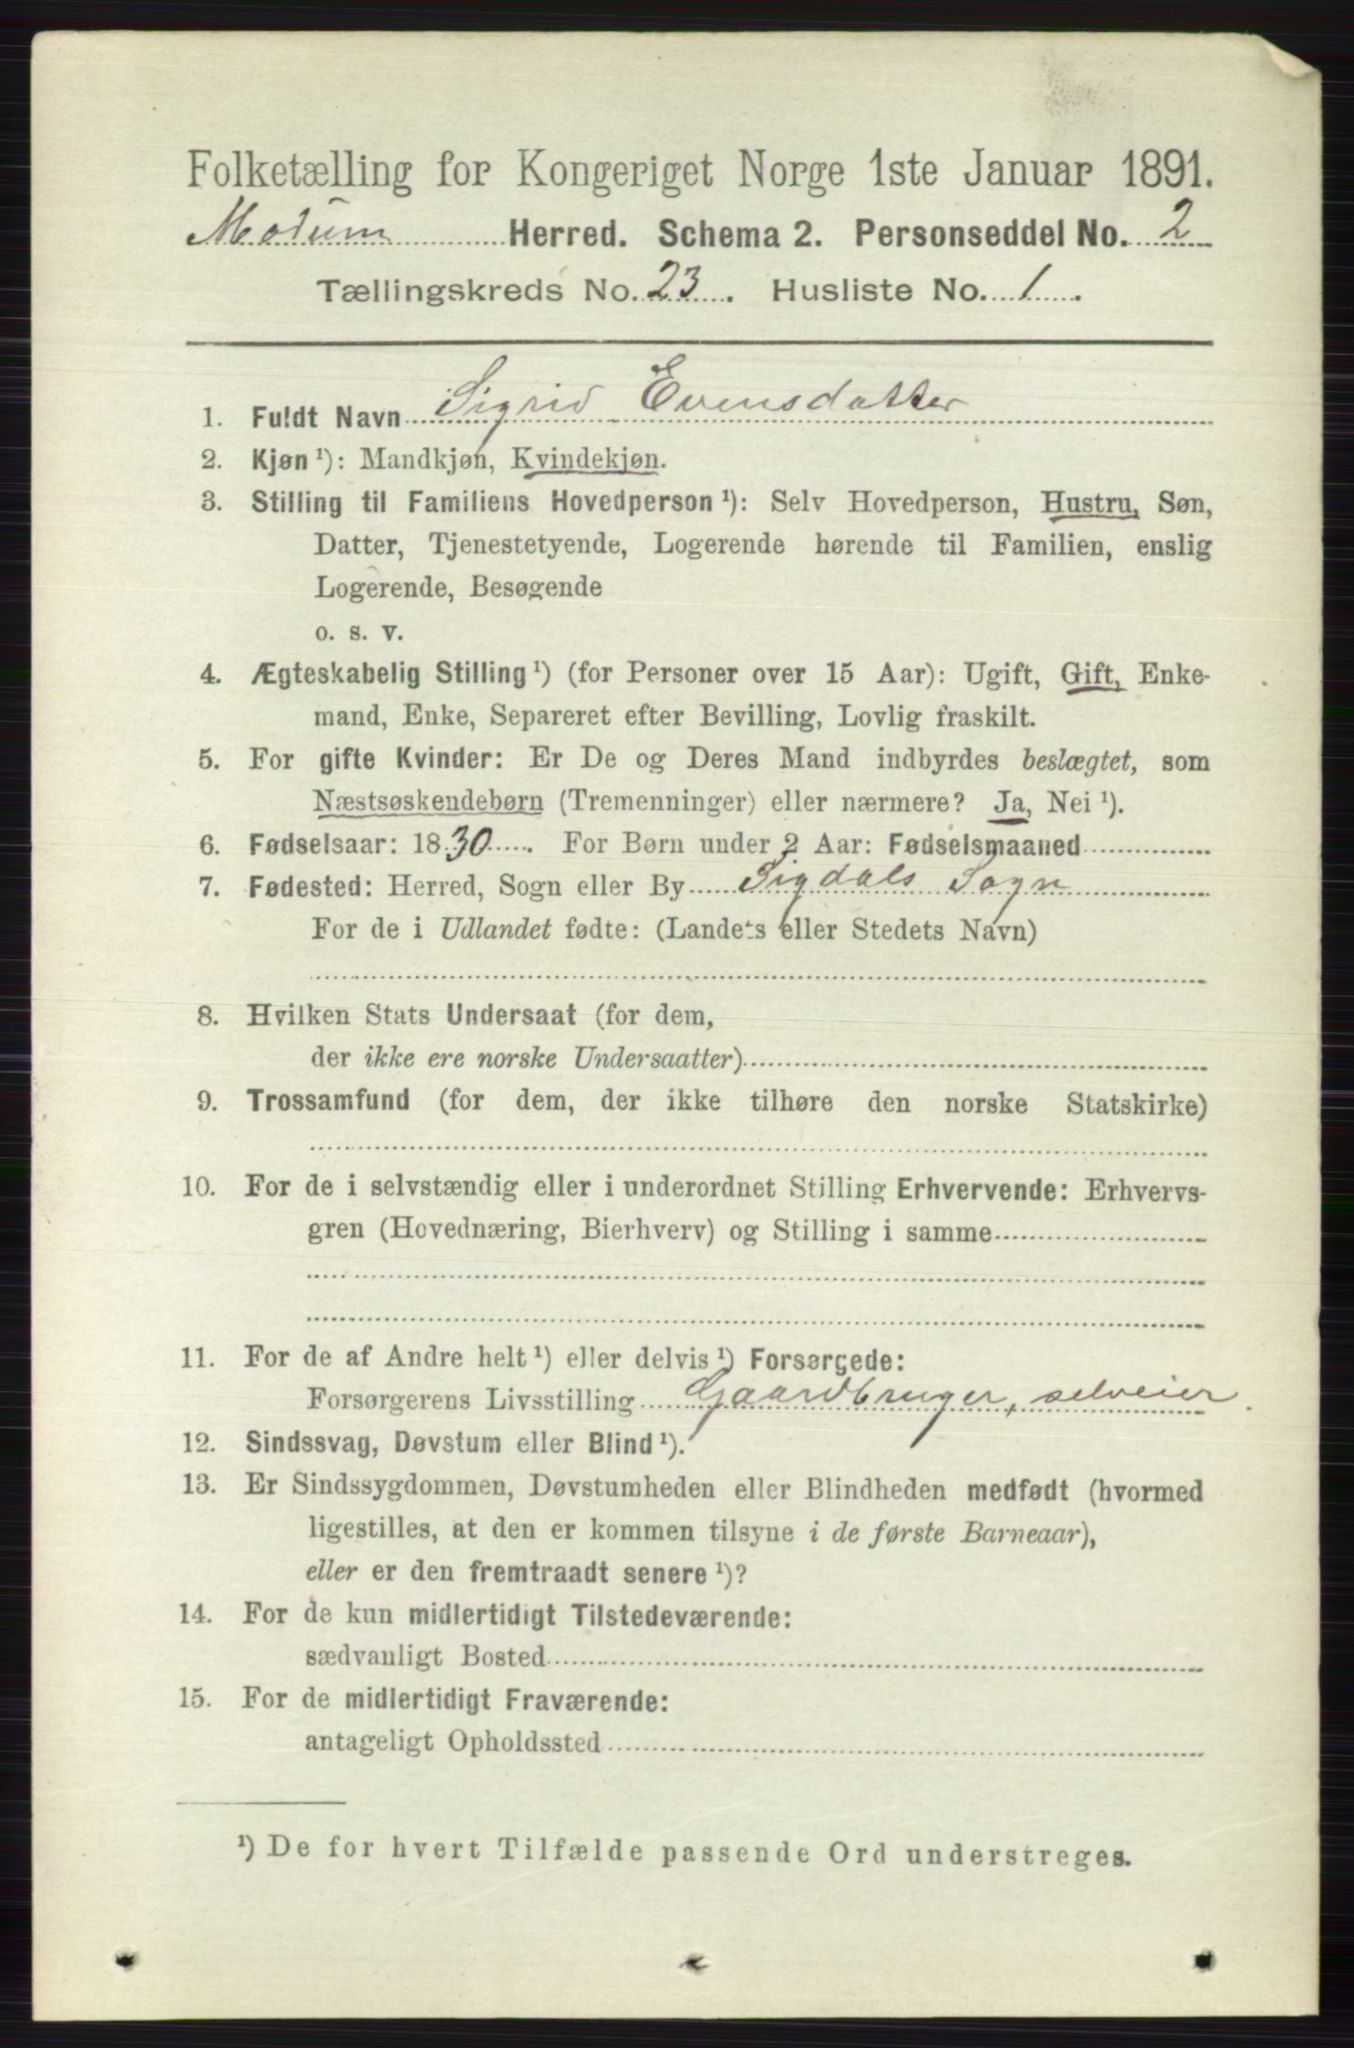 Folketælling for Kongeriget Norge 1ste Januar 1891.
Modum Herred. Schema 2. Personseddel No. 2
Tællingskreds No. 23. Husliste No. 1.
1. Fuldt Navn Sigrid Evensdatter
2. Kjøn ¹): Mandkjøn, Kvindekjøn.
3. Stilling til Familiens Hovedperson ¹): Selv Hovedperson, Hustru, Søn,
Datter, Tjenestetyende, Logerende hørende til Familien, enslig
Logerende, Besøgende
o. s. v.
4. Ægteskabelig Stilling ¹) (for Personer over 15 Aar): Ugift, Gift, Enke-
mand, Enke, Separeret efter Bevilling, Lovlig fraskilt.
5. For gifte Kvinder: Er De og Deres Mand indbyrdes beslægtet, som
Næstsøskendebørn (Tremenninger) eller nærmere? Ja, Nei ¹).
6. Fødselsaar: 1830. For Børn under 2 Aar: Fødselsmaaned
7. Fødested: Herred, Sogn eller By Sigdals Sogn
For de i Udlandet fødte: (Landets eller Stedets Navn)
8. Hvilken Stats Undersaat (for dem,
der ikke ere norske Undersaatter)
9. Trossamfund (for dem, der ikke tilhøre den norske Statskirke)
10. For de i selvstændig eller i underordnet Stilling Erhvervende: Erhvervs-
gren (Hovednæring, Bierhverv) og Stilling i samme
11. For de af Andre helt ¹) eller delvis ¹) Forsørgede:
Forsørgerens Livsstilling Gaardbruger, selveier.
12. Sindssvag, Døvstum eller Blind ¹).
13. Er Sindssygdommen, Døvstumheden eller Blindheden medfødt (hvormed
ligestilles, at den er kommen tilsyne i de første Barneaar),
eller er den fremtraadt senere ¹)?
14. For de kun midlertidigt Tilstedeværende:
sædvanligt Bosted
15. For de midlertidigt Fraværende:
antageligt Opholdssted
¹) De for hvert Tilfælde passende Ord understreges.